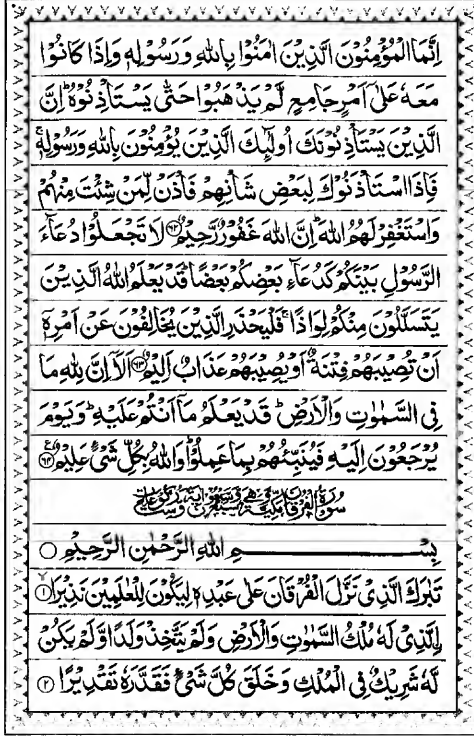 اِنَّمَا الْمُؤْمِنُوْنَ الَّذِيْنَ اٰمَنُوْا بِاللّٰهِ وَرَسُوْلِهٖ وَاِذَا كَانُوْا
مَعَهٗ عَلٰۤى اَمْرٍ جَامِعٍ لَّمْ يَذْهَبُوْا حَتّٰى يَسْتَاْذِنُوْهُ ؕ اِنَّ
الَّذِيْنَ يَسْتَاْذِنُوْنَكَ اُولٰٓئِكَ الَّذِيْنَ يُؤْمِنُوْنَ بِاللّٰهِ وَرَسُوْلِهٖ ۚ
فَاِذَا اسْتَاْذَنُوْكَ لِبَعْضِ شَاْنِهِمْ فَاْذَنْ لِّمَنْ شِئْتَ مِنْهُمْ
وَاسْتَغْفِرْ لَهُمُ اللّٰهَ ؕ اِنَّ اللّٰهَ غَفُوْرٌ رَّحِيْمٌ ﴿۶۲﴾ لَا تَجْعَلُوْا دُعَآءَ
الرَّسُوْلِ بَيْنَكُمْ كَدُعَآءِ بَعْضِكُمْ بَعْضًا ؕ قَدْ يَعْلَمُ اللّٰهُ الَّذِيْنَ
يَتَسَلَّلُوْنَ مِنْكُمْ لِوَاذًا ۚ فَلْيَحْذَرِ الَّذِيْنَ يُخَالِفُوْنَ عَنْ اَمْرِهٖۤ
اَنْ تُصِيْبَهُمْ فِتْنَةٌ اَوْ يُصِيْبَهُمْ عَذَابٌ اَلِيْمٌ ﴿۶۳﴾ اَلَاۤ اِنَّ لِلّٰهِ مَا
فِى السَّمٰوٰتِ وَالْاَرْضِ ؕ قَدْ يَعْلَمُ مَاۤ اَنْتُمْ عَلَيْهِ ؕ وَيَوْمَ
يُرْجَعُوْنَ اِلَيْهِ فَيُنَبِّئُهُمْ بِمَا عَمِلُوْا ؕ وَاللّٰهُ بِكُلِّ شَىْءٍ عَلِيْمٌ ﴿۶۴﴾
سُوْرَةُ الْفُرْقَانِ مَكِّيَّةٌ
بِسْمِ اللّٰهِ الرَّحْمٰنِ الرَّحِيْمِ
تَبٰرَكَ الَّذِىْ نَزَّلَ الْفُرْقَانَ عَلٰى عَبْدِهٖ لِيَكُوْنَ لِلْعٰلَمِيْنَ نَذِيْرَا ﴿۱﴾
اِۨلَّذِىْ لَهٗ مُلْكُ السَّمٰوٰتِ وَالْاَرْضِ وَلَمْ يَتَّخِذْ وَلَدًا وَّلَمْ يَكُنْ
لَّهٗ شَرِيْكٌ فِى الْمُلْكِ وَخَلَقَ كُلَّ شَىْءٍ فَقَدَّرَهٗ تَقْدِيْرًا ﴿۲﴾